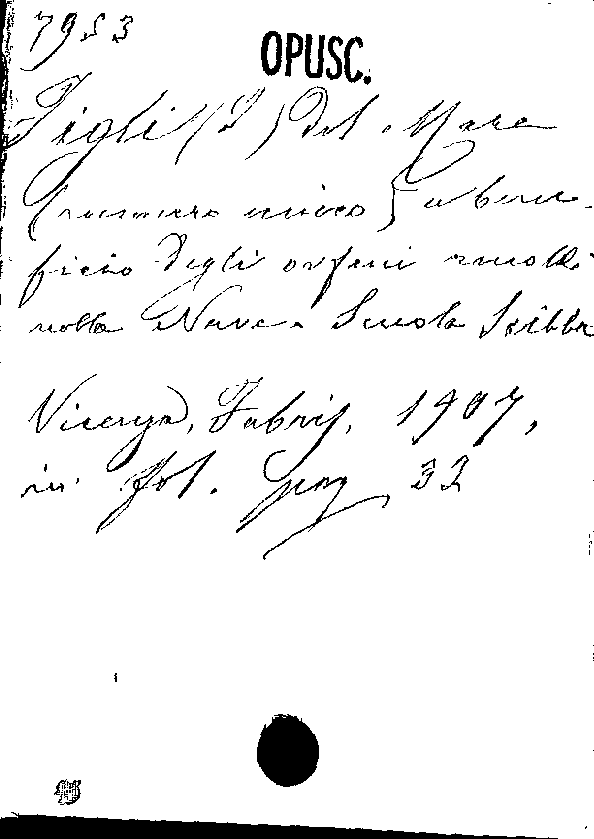 7953
OPUSC.
Figli (I) del Mare
(numero unico) a bene-
ficio degli orfani raccolti
nella Nave-Scuola Scilla
Vicenza, Fabris, 1907,
in fol. pag. 32